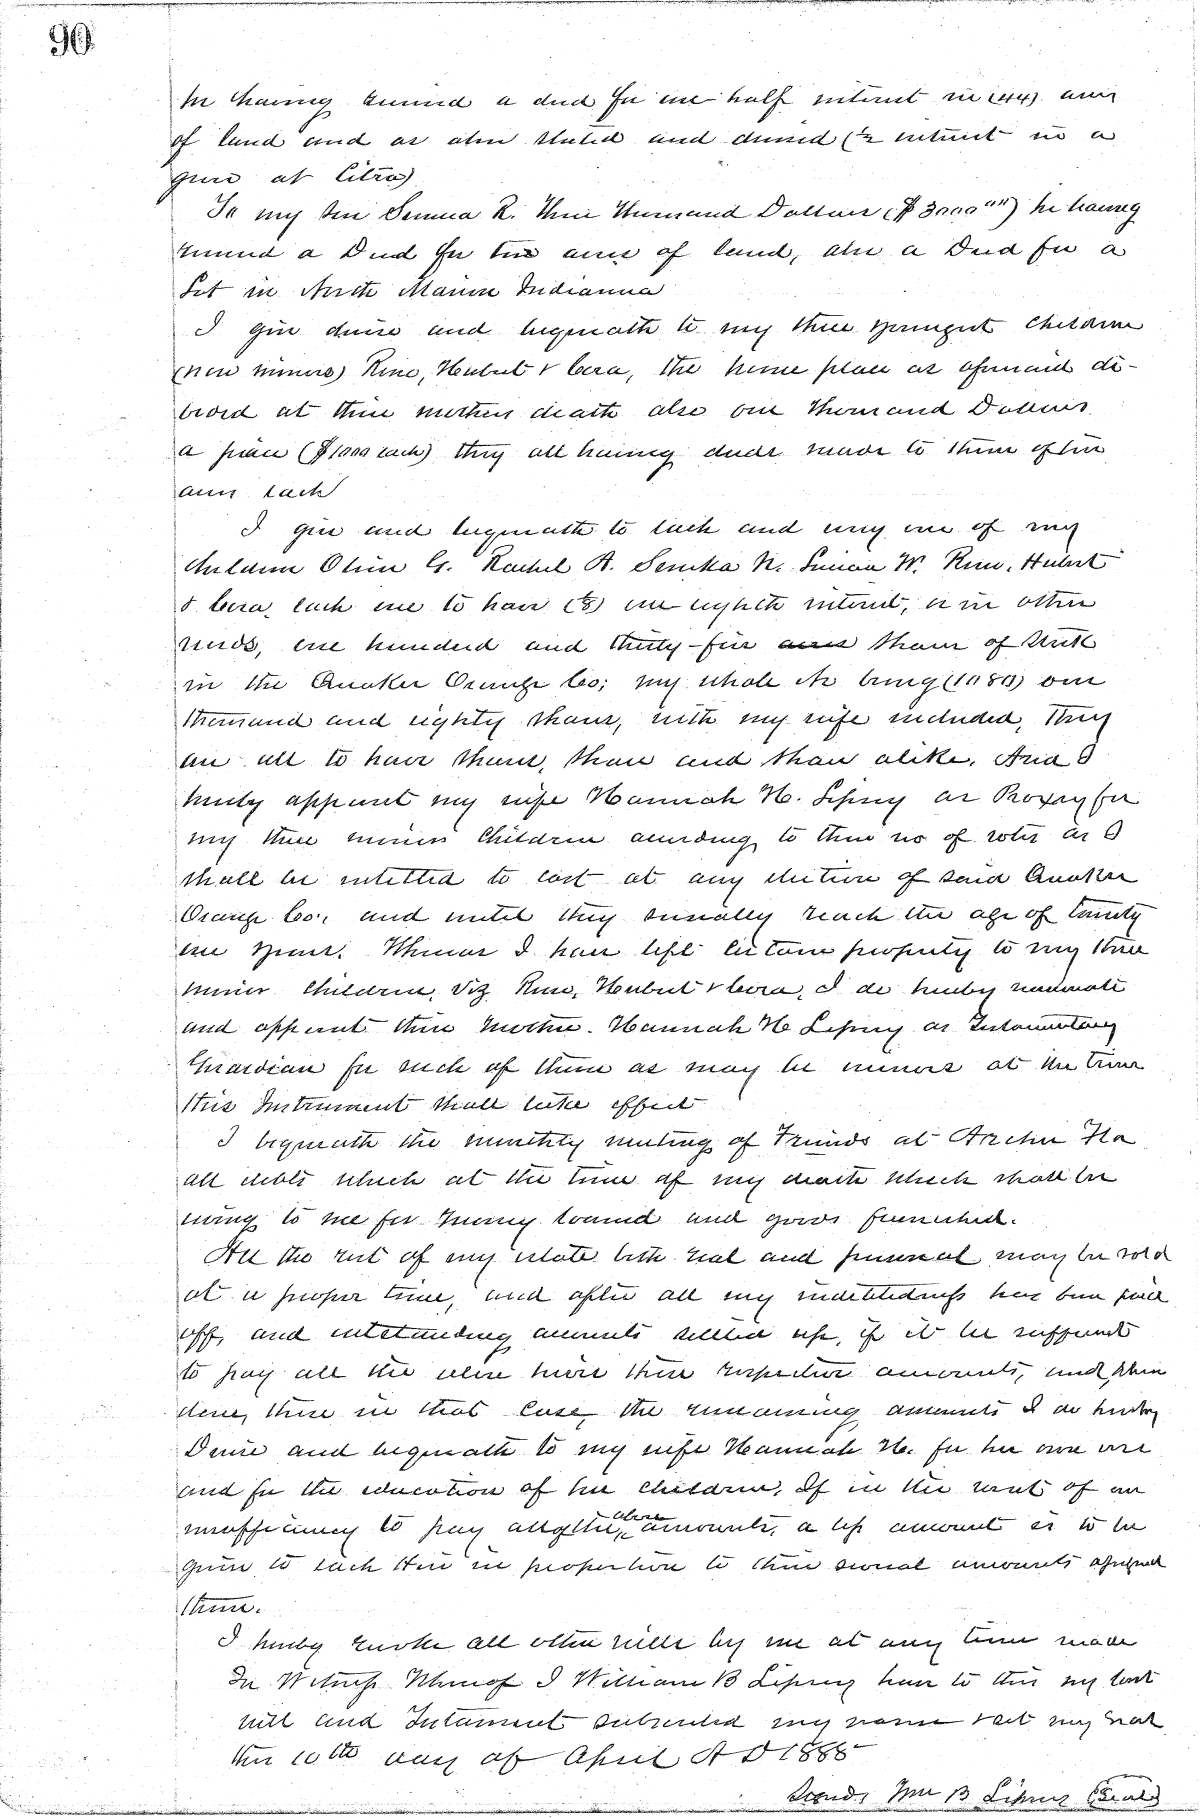 90
he having received a deed for one half interest in (44) acres
of land and as above stated and devised (½ interest in a
grove at Citra)
To my son Simon R. Three Thousand Dollars ($3000⁰⁰) he having
received a Deed for two acres of land, also a Deed for a
Lot in North Marion Indianna
I give devise and bequeath to my three youngest children
(now minors) Rine, Herbert & Cora, the home place as aforesaid di-
vided at their mothers death also one thousand Dollars
a piece ($1000 each) they all having deeds made to them of five
acres each
I give and bequeath to each and every one of my
children Oliver G. Rachel A. Seneka N. Simon W. Rine, Hubert
& Cora, each one to have (⅛) one eighth interest, or in other
words, one hundred and thirty-five acres shares of stock
in the Quaker Orange Co; my whole No being (1080) one
thousand and eighty shares, with my wife included, they
are all to have shares, share and share alike. And I
hereby appoint my wife Hannah H. Lipsey as Proxey for
my three minor children according to their no of votes as I
shall be intitled to cast at any election of said Quaker
Orange Co., and until they severally reach the age of twenty
one years. Whereas I have left certain property to my three
minor children, viz Rine, Herbert & Cora, I do hereby nominate
and appoint their mother. Hannah H Lipsey as Testamentary
Guardian for such of them as may be minors at the time
this Instrument shall take effect
I bequeath the monthly meeting of Friends at Archer Fla
all debts which at the time of my death which shall be
owing to me for money loaned and goods furnished.
All the rest of my estate both real and personal may be sold
at a proper time, and after all my indebtedness has been paid
off, and outstanding accounts settled up, if it be sufficient
to pay all the above heirs their respective amounts, and when
done, then in that case, the remaining amounts I do hereby
Devise and bequeath to my wife Hannah H. for her own use
and for the education of her children, If in the event of an
insufficiency to pay all of the above amounts, a less amount is to be
given to each Heir in proportion to their several amounts assigned
them.
I hereby revoke all other wills by me at any time made
In Witness Whereof I William B Lipsey have to this my last
will and Testament subscribed my name & set my seal
this 10th day of April A D 1888
Signed, Wm B Lipsey (Seal)